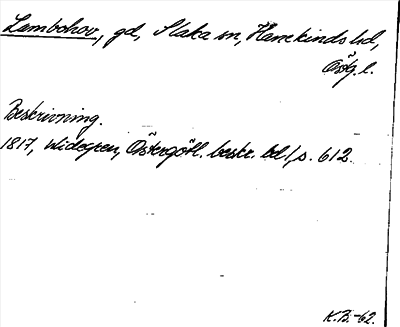 Lambohov, gd, Slaka sn, Hanekinds hd,
Östg. l.
Beskrivning.
1817, Widegren, Östergötl. beskr. bd 1, s. 612.
K.B.-62.